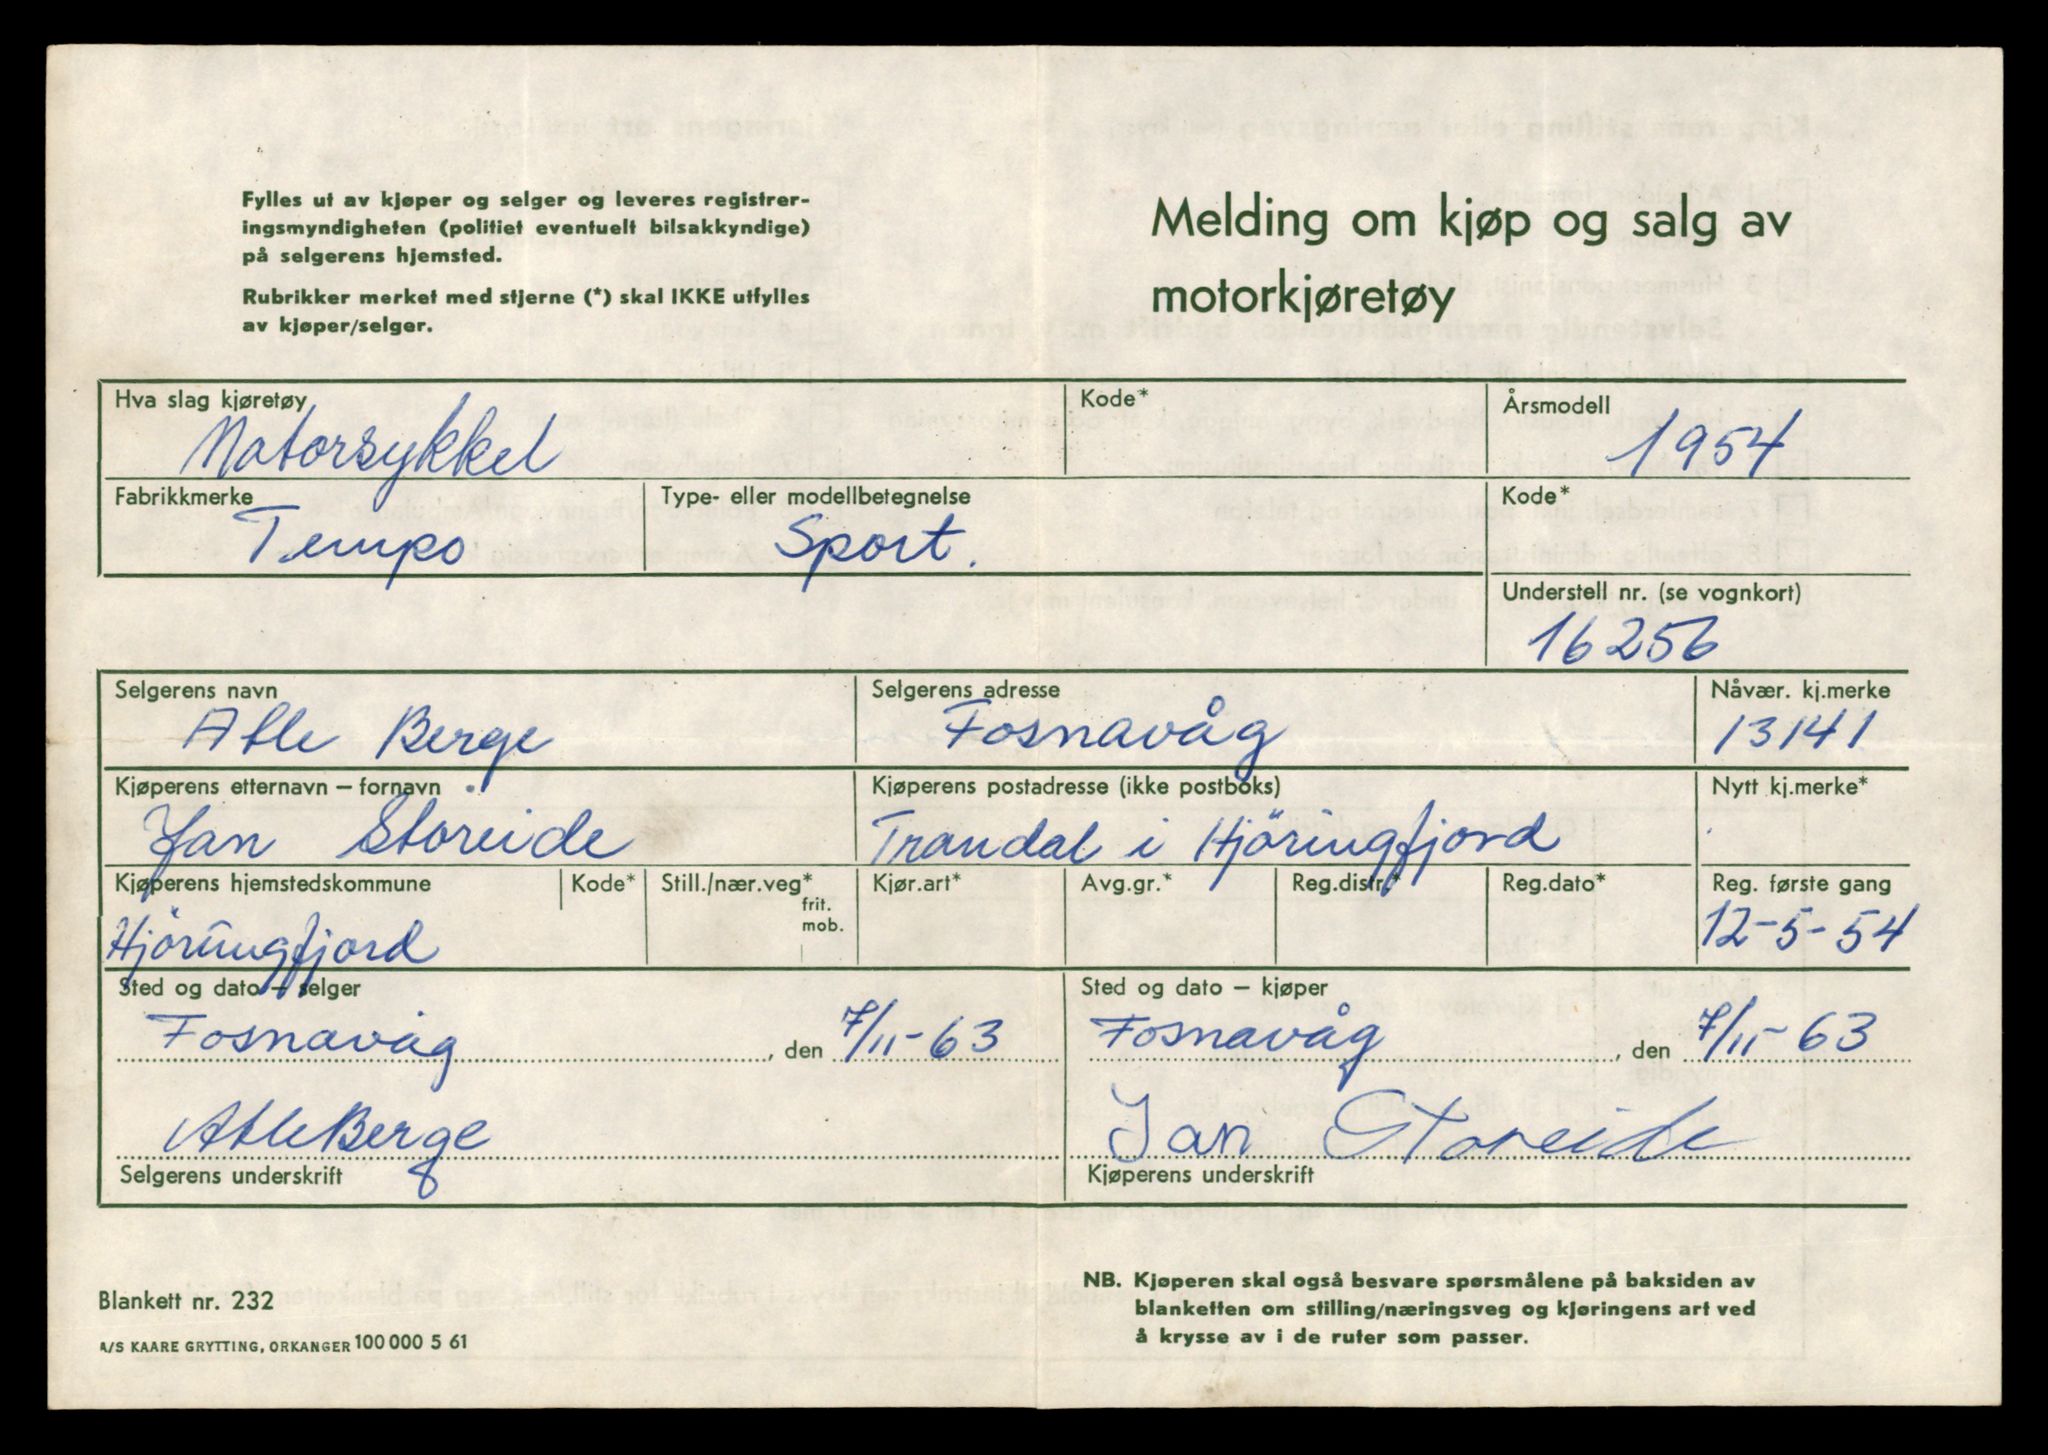 Fylles ut av kjøper og selger og leveres registrer-
ingsmyndigheten (politiet eventuelt bilsakkyndige)
på selgerens hjemsted.
Rubrikker merket med stjerne (*) skal IKKE utfylles
av kjøper/selger.
Melding om kjøp og salg av
motorkjøretøy
Hva slag kjøretøy
Motorsykkel
Kode*
Årsmodell
1954
Fabrikkmerke
Tempo
Type- eller modellbetegnelse
Sport.
Kode*
Understell nr. (se vognkort)
16256
Selgerens navn
Atle Berge
Selgerens adresse
Fosnavåg
Nåvær. kj.merke
13141
Kjøperens etternavn – fornavn
Jan Storeide
Kjøperens postadresse (ikke postboks)
Trandal i Hjöringfjord
Nytt kj.merke*
Kjøperens hjemstedskommune
Hjöringfjord
Kode*
Still./nær.veg*
frit.
mob.
Kjør.art*
Avg.gr.*
Reg.distr.*
Reg.dato*
Reg. første gang
12-5-54
Sted og dato – selger
Fosnavåg, den 7/11-63
Sted og dato – kjøper
Fosnavåg, den 7/11-63
Atle Berge
Selgerens underskrift
Jan Storeide
Kjøperens underskrift
Blankett nr. 232
A/S KAARE GRYTTING, ORKANGER 100 000 5 61
NB. Kjøperen skal også besvare spørsmålene på baksiden av
blanketten om stilling/næringsveg og kjøringens art ved
å krysse av i de ruter som passer.